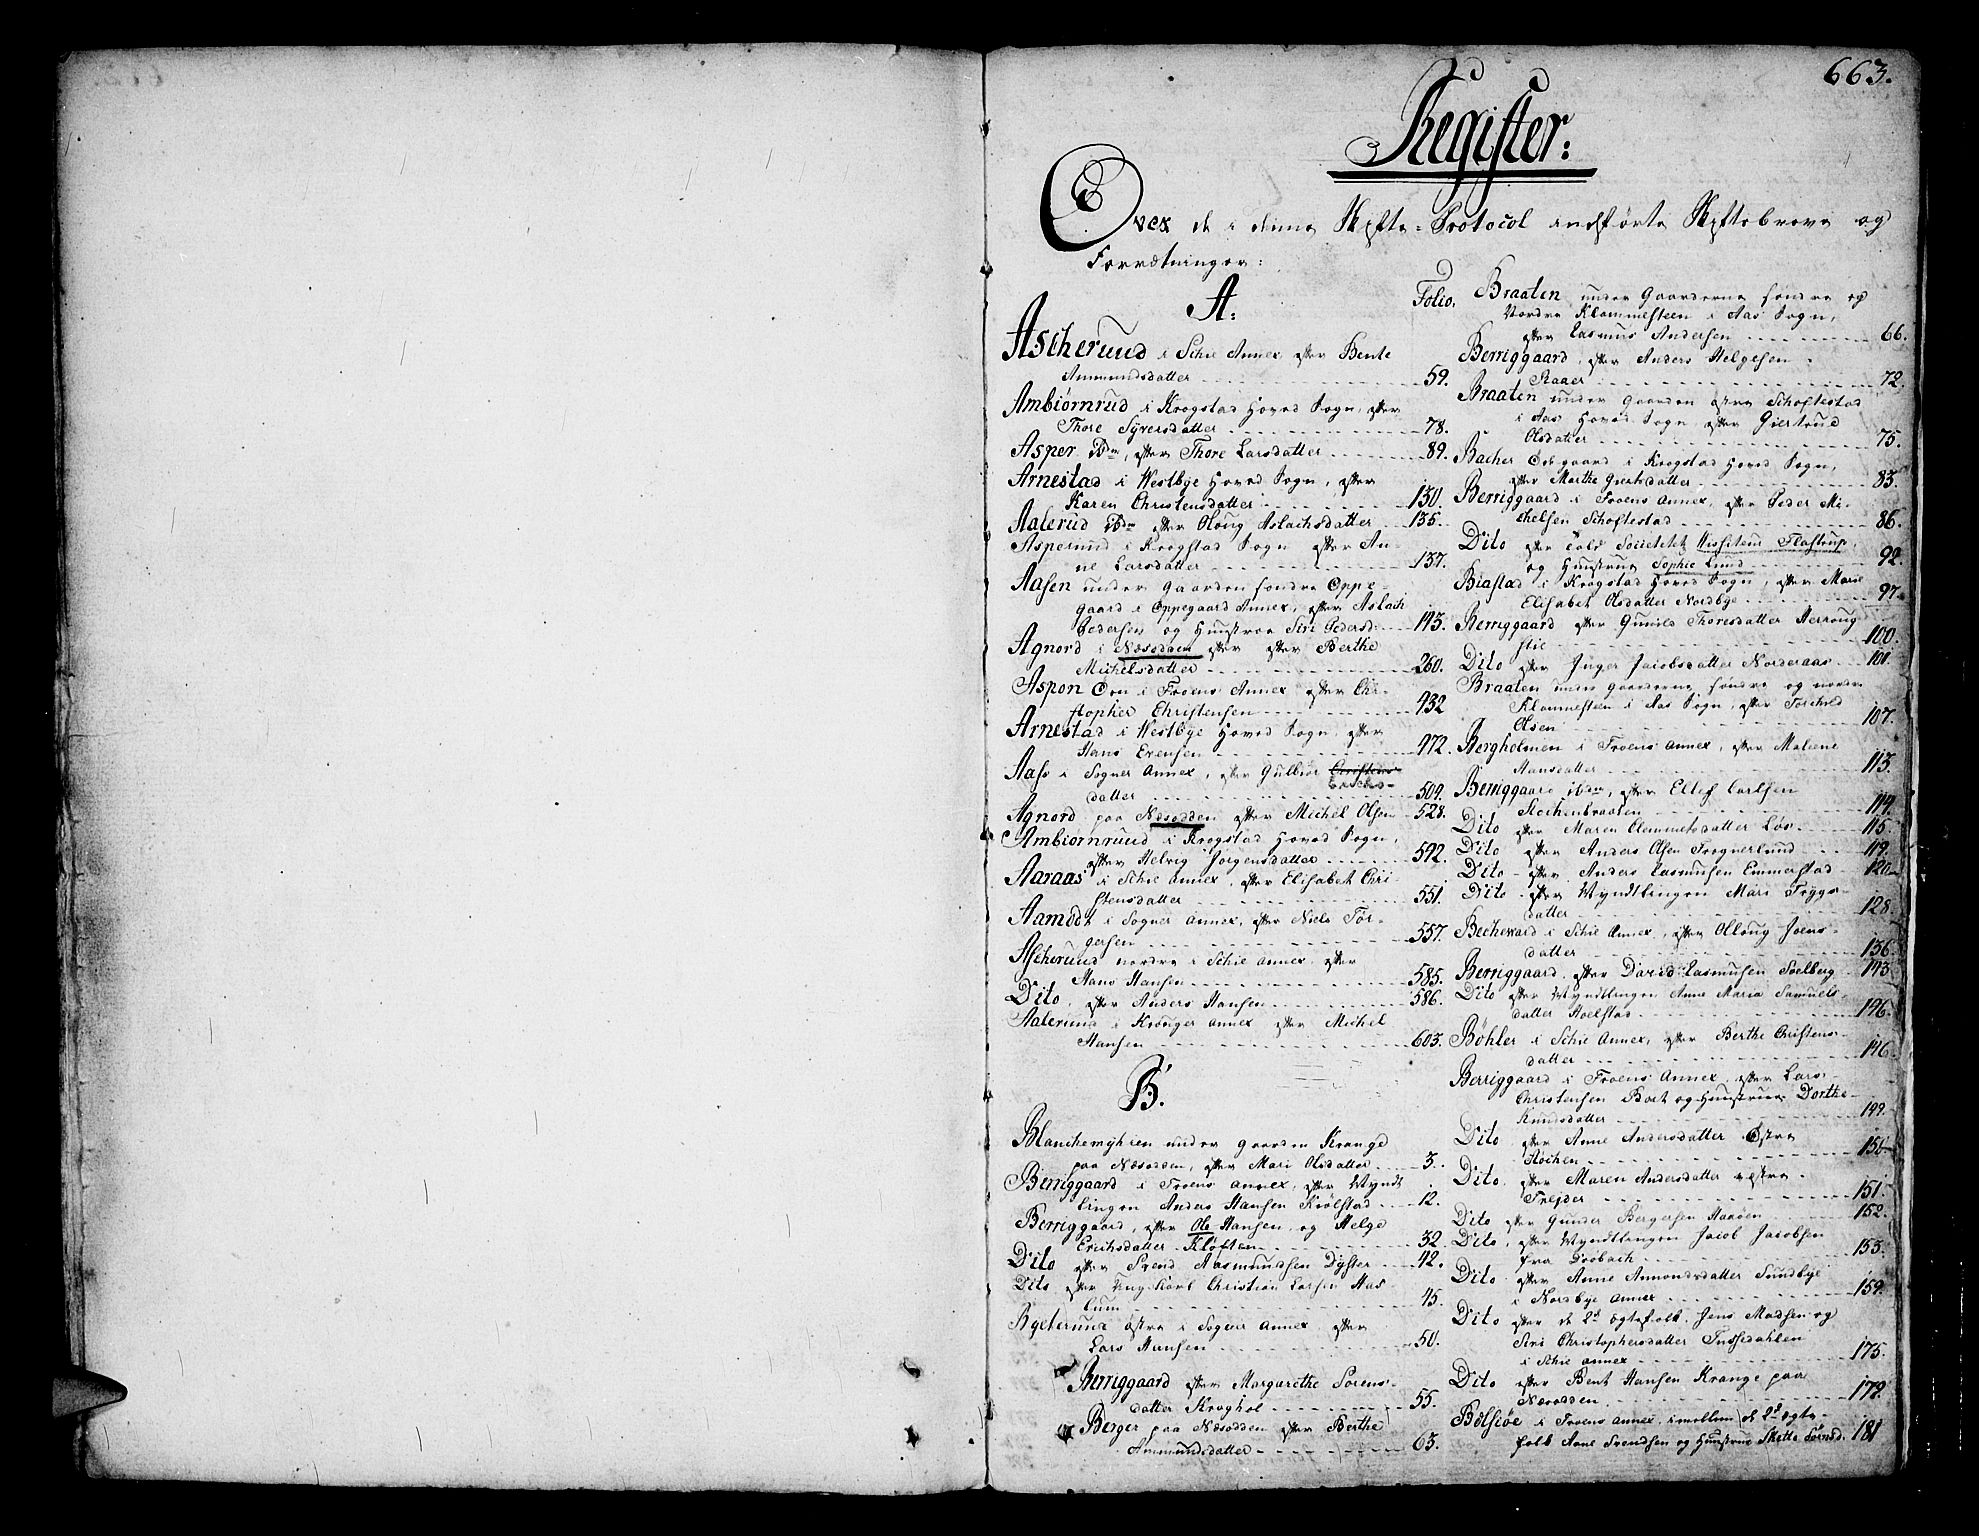 663.
Register:
Over de i denne Skifte-Protocol indførte Skiftebreve og
Forretninger:
A:
Folio.
Ascherund i Schie Annex, efter Bente
Ammundsdatter 59.
Ambiørnrud i Krogstad Hoved Sogn, efter
Thore Syversdatter 78.
Asper Ibdm, efter Thore Larsdatter 89.
Arnestad i Westbye Hoved Sogn, efter
Karen Christensdatter 130.
Aalerud Ibdm efter Oloug Aslachsdatter 135.
Asperund i Krogstad Sogn efter An-
ne Larsdatter 137.
Aasen under Gaarden søndre Oppe-
gaard i Oppegaard Annex, efter Aslach
Pedersen og Hustroe Siri Pedersd: 143.
Agnord i Næsodden efter efter Berthe
Michelsdatter 260.
Aspon Øen i Froens Annex efter Chri-
stopher Christensen 432
Arnestad i Westbye Hoved Sogn, efter
Hans Evensen 472.
Aas i Sogner Annex, efter Gulbiør Christens
datter 509.
Agnord paa Næsodden efter Michel Olsen 528.
Ambiørnruud i Krogstad Hoved Sogn,
efter Helvig Jørgensdatter 542.
Aaraas i Schie Annex, efter Elisabet Chri-
stensdatter 551.
Aamodt i Sogner Annex, efter Niels Tor-
gersen 557.
Ascherund nordre i Schie Annex efter
Hans Hansen 585.
Dito, efter Anders Hansen 586.
Aalerund i Kroeger Annex efter Michel
Hansen 603.
B.
Blanchemyhren under Gaarden Krange
paa Næsodden, efter Mari Olsdatter 3.
Berriggaard i Froens Annex, efter Wyndt
lingen Anders Hansen Kiølstad 12.
Berriggaard, efter Ole Hansen, og Helge
Erichsdatter Kløften 32.
Dito efter Svend Aasmundsen Dyster 42.
Dito efter Christian Larsen Aas
lund 45.
Bylterund østre i Sogner Annex efter
Lars Hansen 50.
Berriggaard efter Margarethe Sørens-
datter Kroghol 55.
Berger paa Næsodden efter Berthe
Ammundsdatter 63.
Braaten under Gaarderne søndre og
Nordre Klommesteen i Aas Sogn,
efter Rasmus Andersen 66.
Berriggaard, efter Anders Helgesen
Skaaer 72.
Braaten under Gaarden østre Schoftestad
i Aas Hoved Sogn, efter Giertrud
Olsdatter 75.
Bacher Ødegaard i Krogstad Hoved Sogn,
efter Marthe Giertsdatter 83.
Berriggaard i Froens Annex, efter Peder Mi-
chelsen Schoftestad 86.
Dito efter Told Flastrup,
og Hustrue Sophie Lund 92.
Biastad i Krogstad Hoved Sogn, efter Marie
Elisabet Olsdatter Nordbye 97.
Berriggaard efter Gunild Thoresdatter Herroug
stie 100.
Dito efter Inger Jacobsdatter Norderaas 101.
Braaten under Gaarderne søndre og nordre
Klommesteen i Aas Sogn, efter Torchild
Olsen 107.
Bergholmen i Froens Annex, efter Malene
Hansdatter 113.
Berriggaard ibdm, efter Ellef Carlsen
Stochenbraaten 114.
Dito efter Maren Clemmetsdatter Løs 115.
Dito efter Anders Olsen Frognerlund 119.
Dito efter Anders Rasmusen Emmerstad 120
Dito efter Wyndtlingen Mari Trygs-
datter 128.
Bechevard i Schie Annex, efter Olloug Joens-
datter 136.
Berriggaard, efter David Rasmusen Soelberg 143.
Dito efter Wyndtlingen Anne Maria Samuels-
datter Hoelstad 146.
Bøhler i Schie Annex, efter Berthe Christens-
datter 146
Berriggaard i Froens Annex, efter Lars
Christensen Bort og Hustrue Dorthe
Knudsdatter 149.
Dito efter Anne Andersdatter Østre
Stochen 150
Dito, efter Maren Andersdatter vestre
Frejder 151.
Dito efter Gunder Bergersen Harøen 152.
Dito, efter Wyndtlingen Jacob Jacobsen
fra Drøbach 153.
Dito efter Anne Ammondsdatter Sundbye
i Nordbye Annex 159.
Dito efter de 2de Ægtefolk Jens Madsen og
Siri Christophersdatter Tussedahlen
i Schie Annex 175.
Dito efter Bent Hansen Krange paa
Næsodden 179.
Bølsiøe i Froens Annex, imellem de 2de Ægte-
folk Arne Svendsen og Hustrue Mette Sørnsd. 181